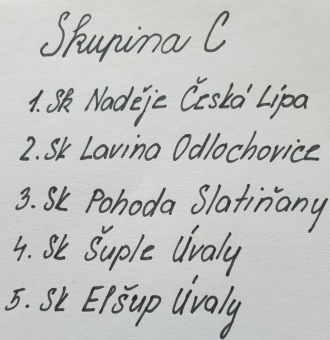 Skupina C
1. Sk Naděje Česká Lípa
2. Sk Lavina Odlochovice
3. Sk Pohoda Slatiňany
4. Sk Šuple Úvaly
5. Sk Elšup Úvaly